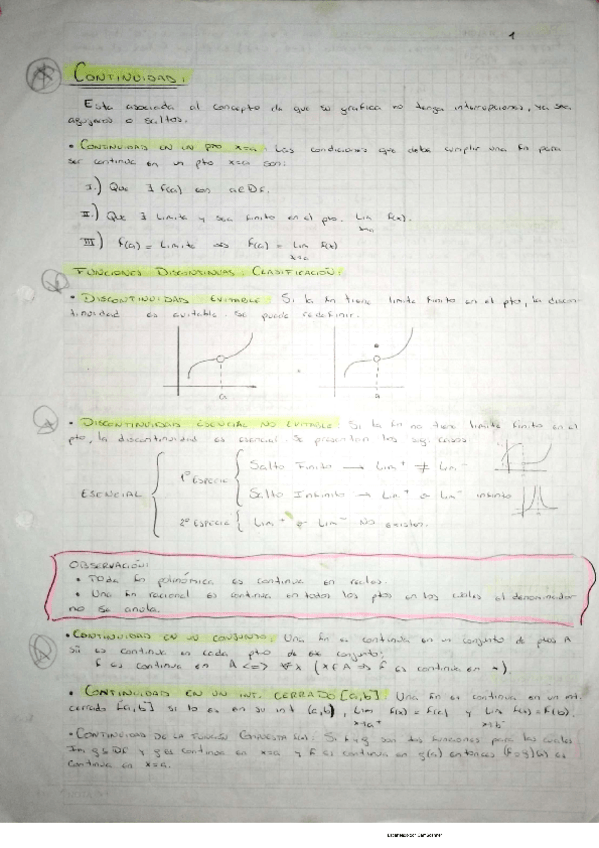 1
CONTINUIDAD:
Esta asociada al concepto de que su grafica no tenga interrupciones, ya sea
agujeros o saltos.
• CONTINUIDAD EN UN PTO x=a: Las condiciones que debe cumplir una fn para
ser continua en un pto x=a son:
I.) Que ∃ f(a) a∈Df.
II.) Que ∃ Limite y sea finito en el pto. Lim f(x).
x→a
III) f(a) = Limite f(a) = Lim f(x)
x→a
FUNCIONES DISCONTINUAS: CLASIFICACIÓN:
• DISCONTINUIDAD EVITABLE: Si la fn tiene limite finito en el pto, la discon-
tinuidad es evitable. Se puede redefinir.
a a
• DISCONTINUIDAD ESENCIAL NO EVITABLE: Si la fn no tiene limite finito en el
pto, la discontinuidad es esencial. Se presentan los sig. casos
ESENCIAL
1° ESPECIE
Salto Finito → Lim⁺ ≠ Lim⁻
Salto Infinito → Lim⁺ o Lim⁻ infinito
2° ESPECIE { Lim⁺ o Lim⁻ No existen.
OBSERVACIÓN:
• Toda fn polinómica es continua en reales.
• Una fn racional es continua en todos los ptos en los cuales el denominador
no se anula.
• CONTINUIDAD EN UN CONJUNTO: Una fn es continua en un conjunto de ptos A
si es continua en cada pto de ese conjunto:
f es continua en A <=> ∀x (x∈A ⇒ f es continua en x).
• CONTINUIDAD EN UN INT. CERRADO [a,b]: Una fn es continua en un int.
cerrado [a,b] si lo es en su int (a,b), Lim f(x) = f(a) y Lim f(x) = f(b).
x→a⁺ x→b⁻
• CONTINUIDAD DE LA FUNCIÓN COMPUESTA: Si f y g son dos funciones para las cuales
Im g ⊆ Df y g es continua en x=a y f es continua en g(a) entonces (f∘g)(x) es
continua en x=a.